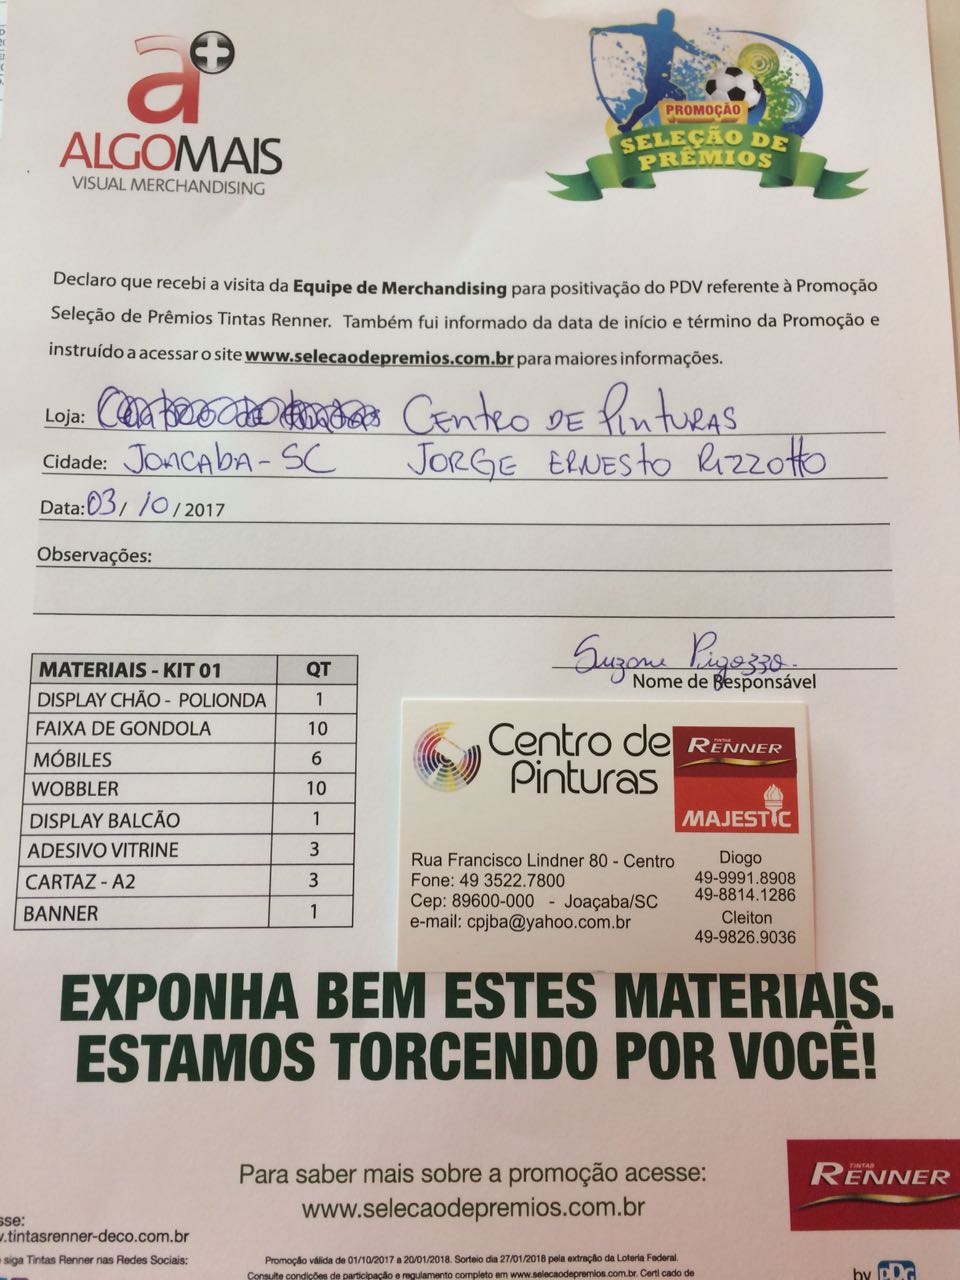 a+
ALGOMAIS
VISUAL MERCHANDISING
PROMOÇÃO
SELEÇÃO DE
PRÊMIOS
Declaro que recebi a visita da Equipe de Merchandising para positivação do PDV referente à Promoção
Seleção de Prêmios Tintas Renner. Também fui informado da data de início e término da Promoção e
instruído a acessar o site www.selecaodepremios.com.br para maiores informações.
Loja: CENTRO DE PINTURAS
Cidade: JOACABA-SC JORGE ERNESTO RIZZOTTO
Data: 03/10/2017
Observações:
Suzane Pigozzo.
Nome de Responsável
MATERIAIS - KIT 01 QT
DISPLAY CHÃO - POLIONDA 1
FAIXA DE GONDOLA 10
MÓBILES 6
WOBBLER 10
DISPLAY BALCÃO 1
ADESIVO VITRINE 3
CARTAZ - A2 3
BANNER 1
Centro de
Pinturas
TINTAS
RENNER
MAJESTIC
Rua Francisco Lindner 80 - Centro
Fone: 49 3522.7800
Cep: 89600-000 - Joaçaba/SC
e-mail: cpjba@yahoo.com.br
Diogo
49-9991.8908
49-8814.1286
Cleiton
49-9826.9036
EXPONHA BEM ESTES MATERIAIS.
ESTAMOS TORCENDO POR VOCÊ!
Para saber mais sobre a promoção acesse:
www.selecaodepremios.com.br
TINTAS
RENNER
sse:
.tintasrenner-deco.com.br
siga Tintas Renner nas Redes Sociais:
Promoção válida de 01/10/2017 a 20/01/2018. Sorteio dia 27/01/2018 pela extração da Loteria Federal.
Consulte condições de participação e regulamento completo em www.selecaodepremios.com.br. Certi cado de
by PPG